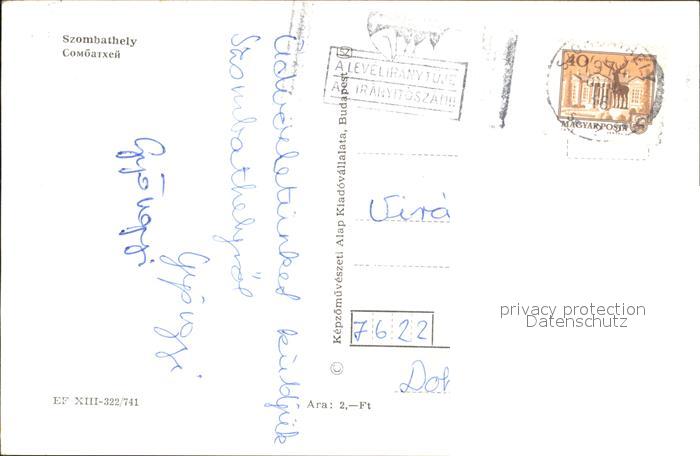 Szombathely
Сомбатхей
Üdvözletünket küldjük
Szombathelyről
Gyöngyi
Gyöngyi
EF XIII-322/741
© Képzőművészeti Alap Kiadóvállalata, Budapest
A LEVÉL IRÁNYTŰJE
AZ IRÁNYÍTÓSZÁM!
40
MAGYAR POSTA
Virá
privacy protection
Datenschutz
7622
Ára: 2,—Ft